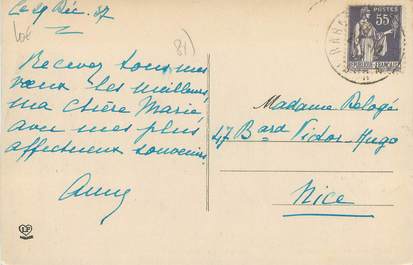 Le 29 Déc. 37
81)
Recevez tous mes
vœux les meilleurs
ma chère Marie
avec mes plus
affectueux souvenirs
Madame Relogé
47 Bard Victor-Hugo
Nice
POSTES
55